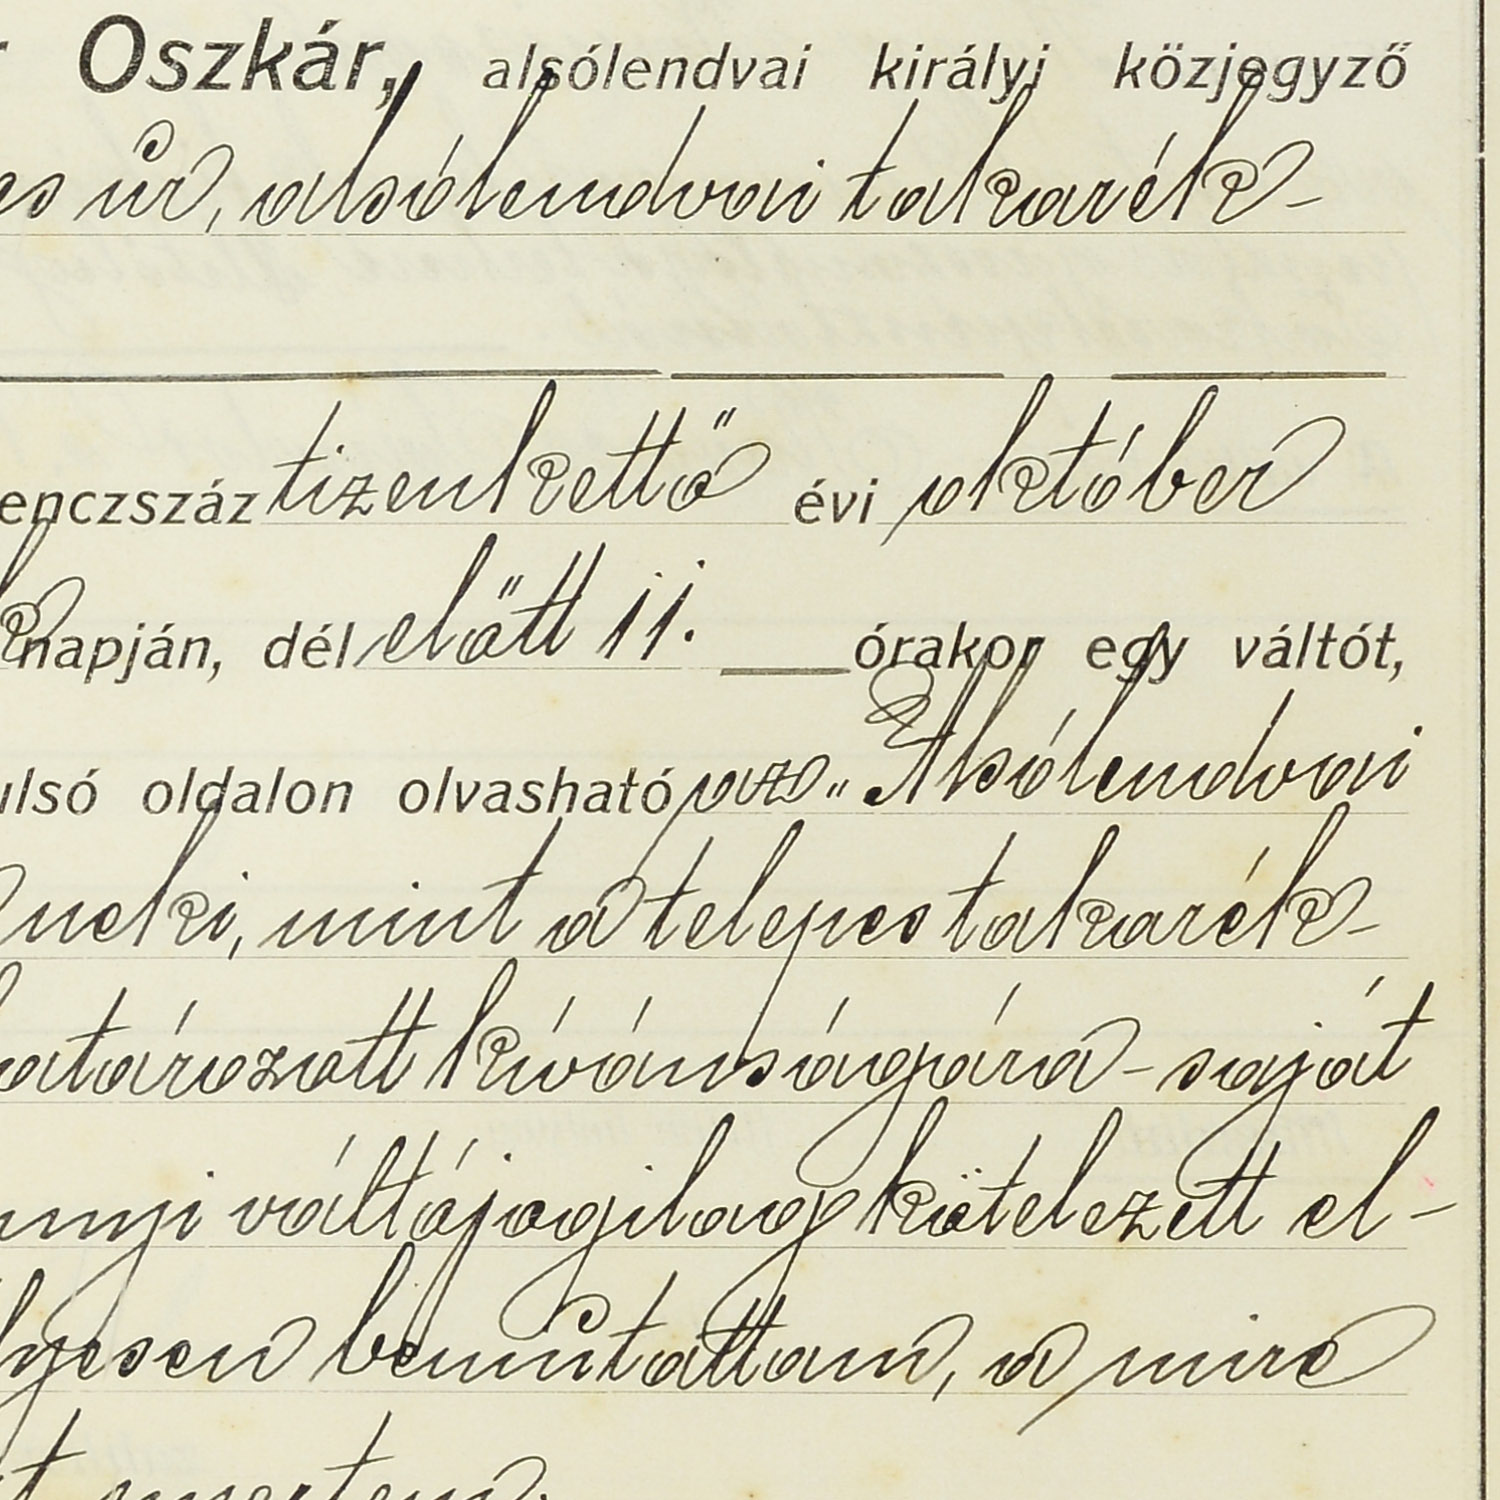 Oszkár, alsólendvai királyi közjegyző
es úr, alsólendvai takarék-
enczszáz tizenkettő évi október
napján, délelőtt 11. órakor egy váltót,
ulsó oldalon olvasható az „Alsólendvai
neki, mint a telepes takarék-
atározott kívánságára - saját
nnyi váltójogilag kötelezett el-
lyesen bemutattam, a mire
t nyertem.